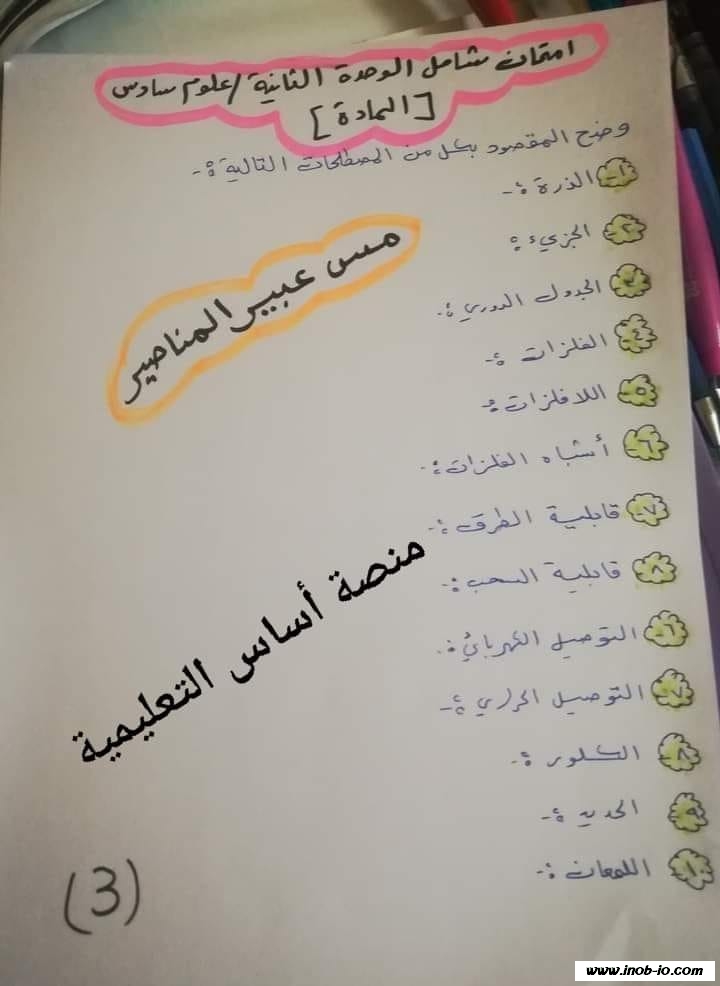 امتحان شامل الوحدة الثانية / علوم سادس
[المادة]
وضح المقصود بكل من المصطلحات التالية :-
١- الذرة :-
٢- الجزيء :
٣- الجدول الدوري :-
٤- الفلزات :-
٥- اللافلزات :-
٦- أشباه الفلزات :-
٧- قابلية الطرق :-
٨- قابلية السحب :-
٦- التوصيل الكهربائي :-
٧- التوصيل الحراري :-
٨- الكلور :-
٩- الحديد :-
١٠- اللمعان :-
مس عبير المناصير
منصة أساس التعليمية
(3)
www.inob-io.com